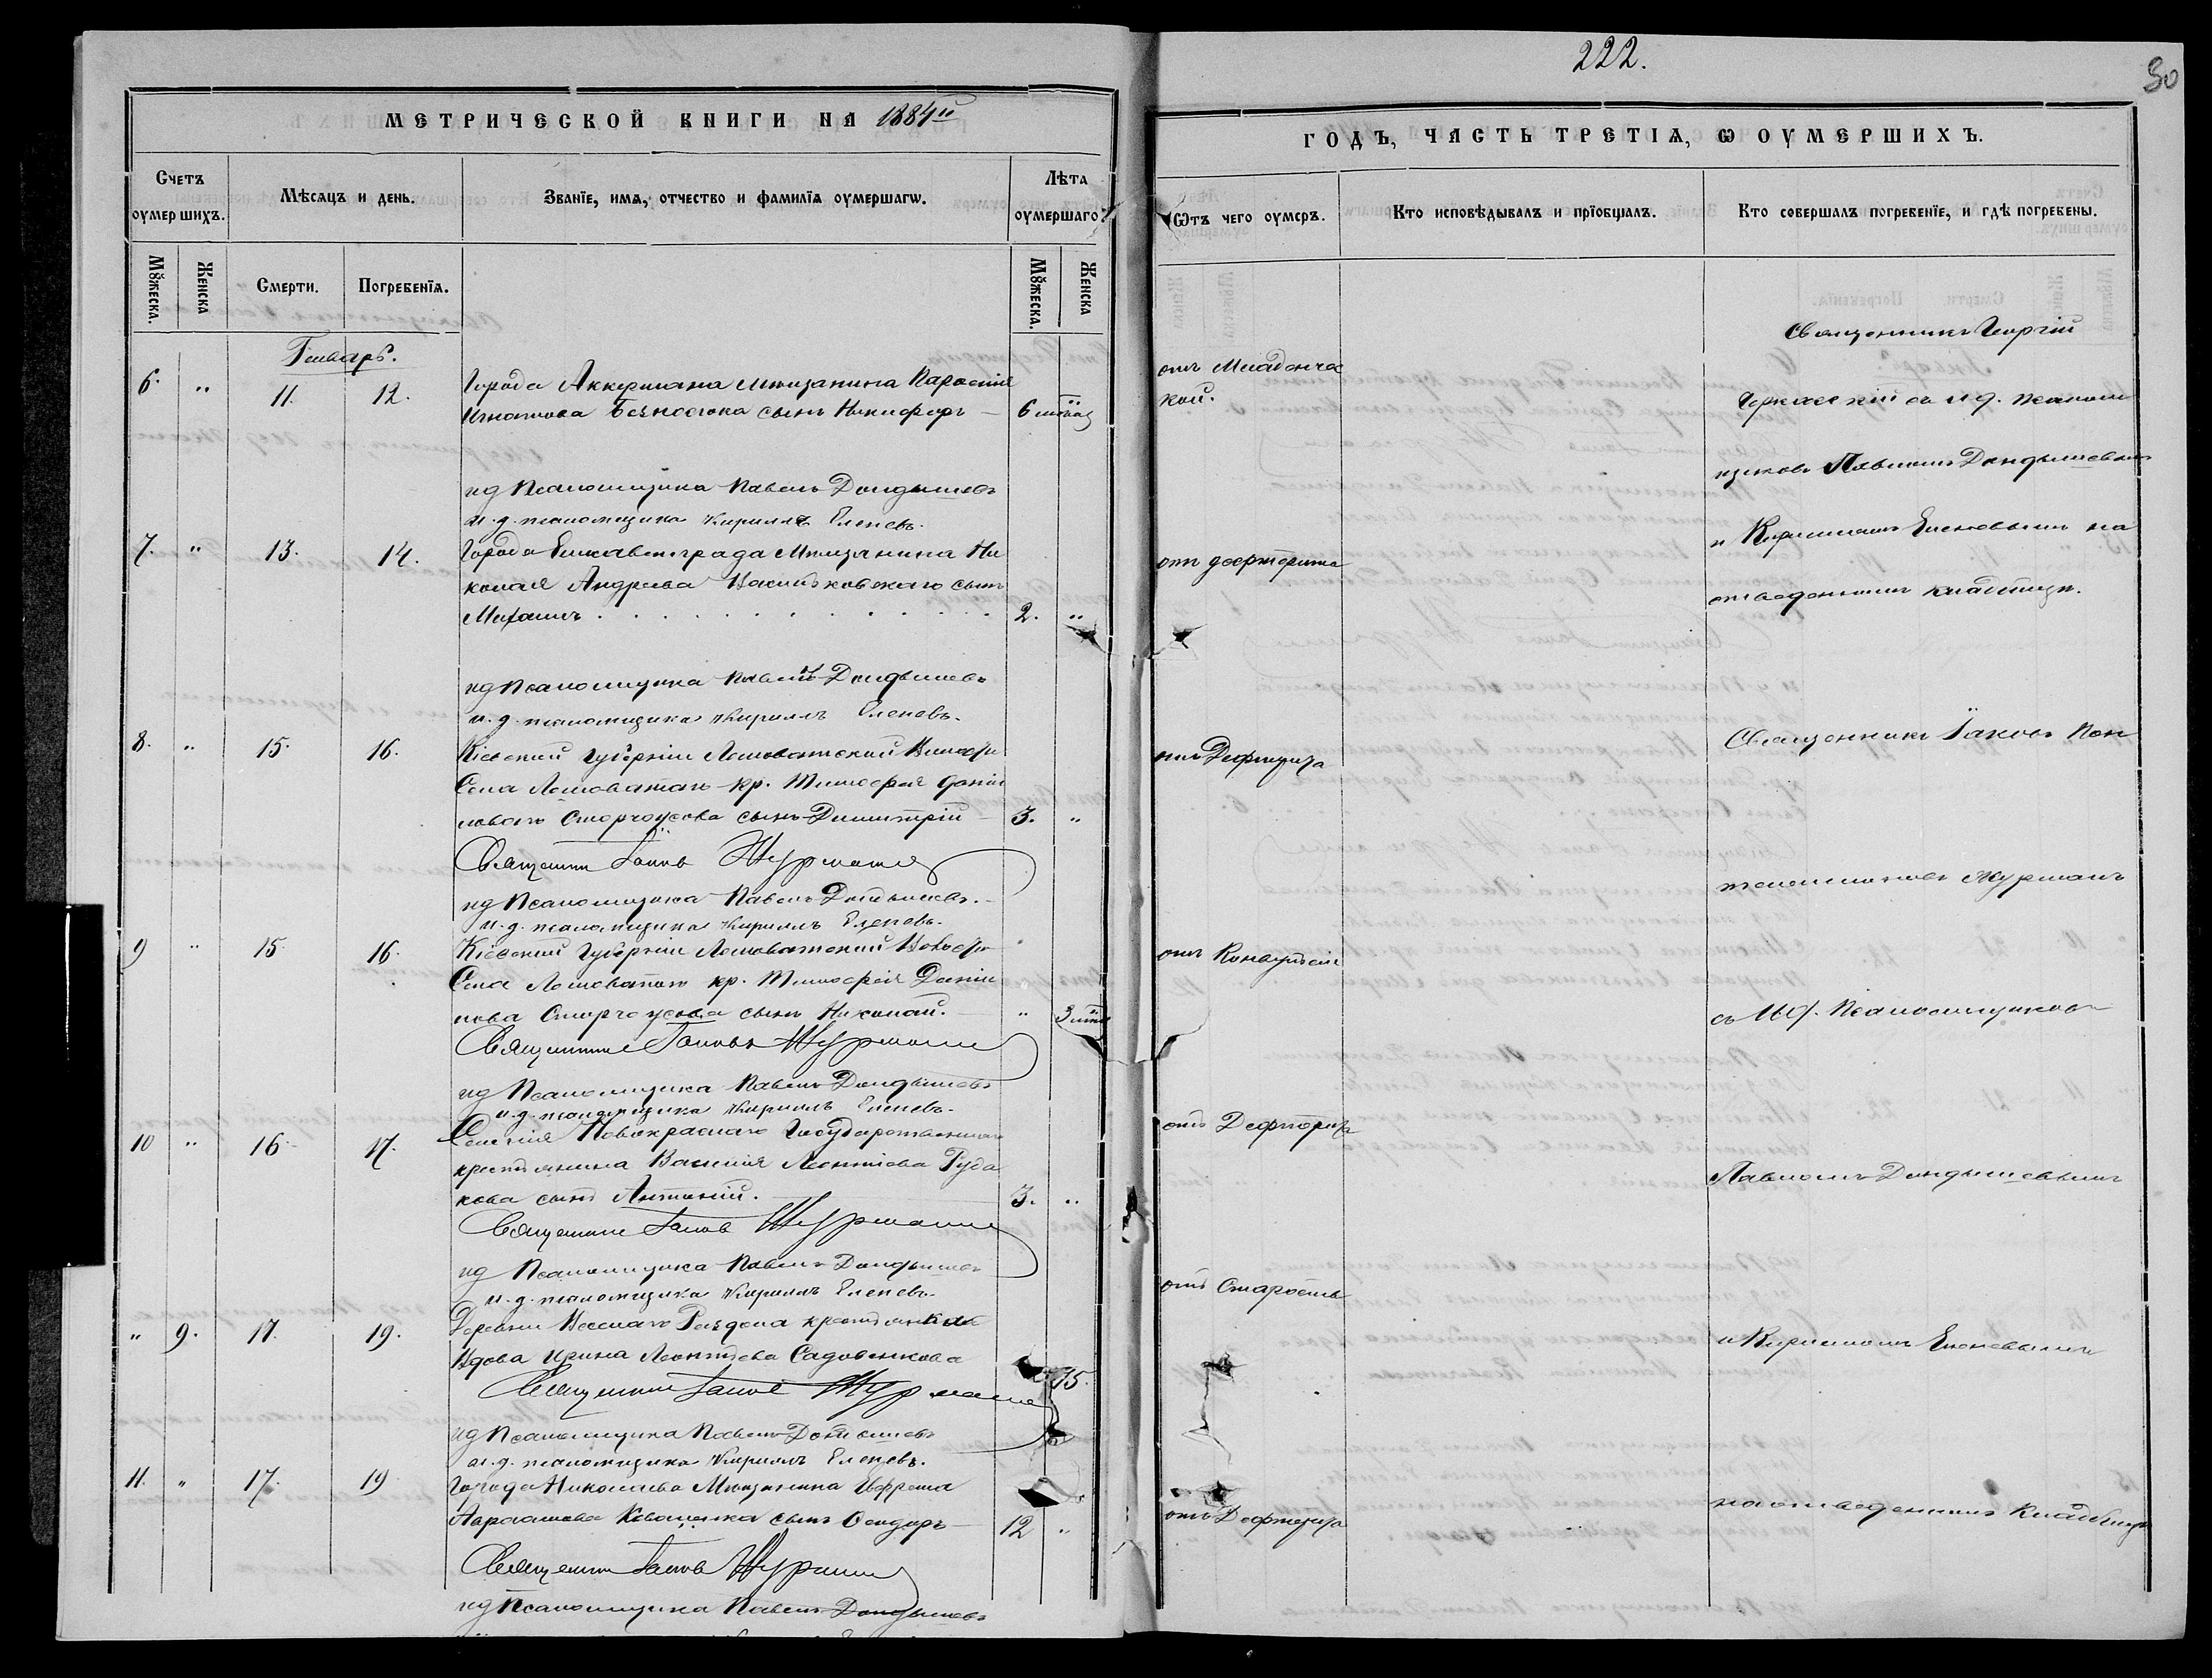 222.
30
МЕТРИЧЕСКОЙ КНИГИ НА 1884й
ГОДЪ, ЧАСТЬ ТРЕТІЯ, Ѡ ОУМЕРШИХЪ.
Счетъ оумершихъ.
Мѣсяцъ и день.
Званїе, имя, отчество и фамилїя оумершагѡ.
Лѣта оумершаго.
Ѿтъ чего оумеръ.
Кто исповѣдывалъ и прїобщалъ.
Кто совершалъ погребенїе, и гдѣ погребены.
Мꙋжеска.
Женска
Смерти.
Погребенїя.
Мꙋжеска.
Женска
Январь.
6. " 11. 12.
Города Аккермана мѣщанина
Игнатова сынъ Никифоръ
6
отъ Младенчес
кой.
ид Псаломщика Павелъ Дондышевъ
и.д. псаломщика Кириллъ Еленевъ.
7. " 13. 14.
Города Елисаветграда Мѣщанина Ни
колая Андреева Васильковскаго сынъ
Михаилъ
2. "
отъ дефтерита
ид Псаломщика Павелъ Дондышевъ
и.д. псаломщика Кириллъ Еленевъ.
Священникъ Георгій
Черкасскій съ и д. псалом
щиковъ Павломъ Дондышевымъ
и Кирилломъ Еленевымъ на
отведенномъ кладбищѣ.
8. " 15. 16.
Кіевской губерніи Лашоватской Волости
Села Лашоватаго кр. Тимофея Дани
лова сынъ Димитрій
3. "
отъ Дефтерита
Священникъ Іаковъ Журманъ
ид Псаломщика Павелъ Дондышевъ.
и.д. псаломщика Кириллъ Еленевъ.
9 " 15. 16.
Кіевской губерніи Лашоватской Волости
Села Лашоватаго кр. Тимофея Данил
лова сынъ Николай.
" 3
отъ Конвульсіи
Священникъ Іаковъ Журманъ
ид Псаломщика Павелъ Дондышевъ
и.д. псаломщика Кириллъ Еленевъ.
10 " 16. 17.
Селенія Новокраснаго Государственнаго
крестьянина Василія Леонтіева Руда
кова сынъ Антоній.
3. "
отъ Дефтерита
Священникъ Іаковъ Журманъ
ид Псаломщика Павелъ Дондышевъ
и.д. псаломщика Кириллъ Еленевъ.
" 9. 17. 19.
Деревни Веселаго Раздола крестьянская
Вдова Ирина Леонтьева Садовенкова
75.
отъ Старость
Священникъ Іаковъ Журманъ
ид Псаломщика Павелъ Дондышевъ
и.д. псаломщика Кириллъ Еленевъ.
11. " 17. 19
Города Николаева Мѣщанина Ефрема
Авраамова сынъ Ѳеодоръ
12 "
отъ Дефтерита
Священникъ Іаковъ Журманъ
ид Псаломщика Павелъ Дондышевъ
Священникъ Іаковъ
Журманъ
съ И.д. Псаломщиковъ
Павломъ Дондышевымъ
и Кирилломъ Еленевымъ
на отведенномъ Кладбищѣ